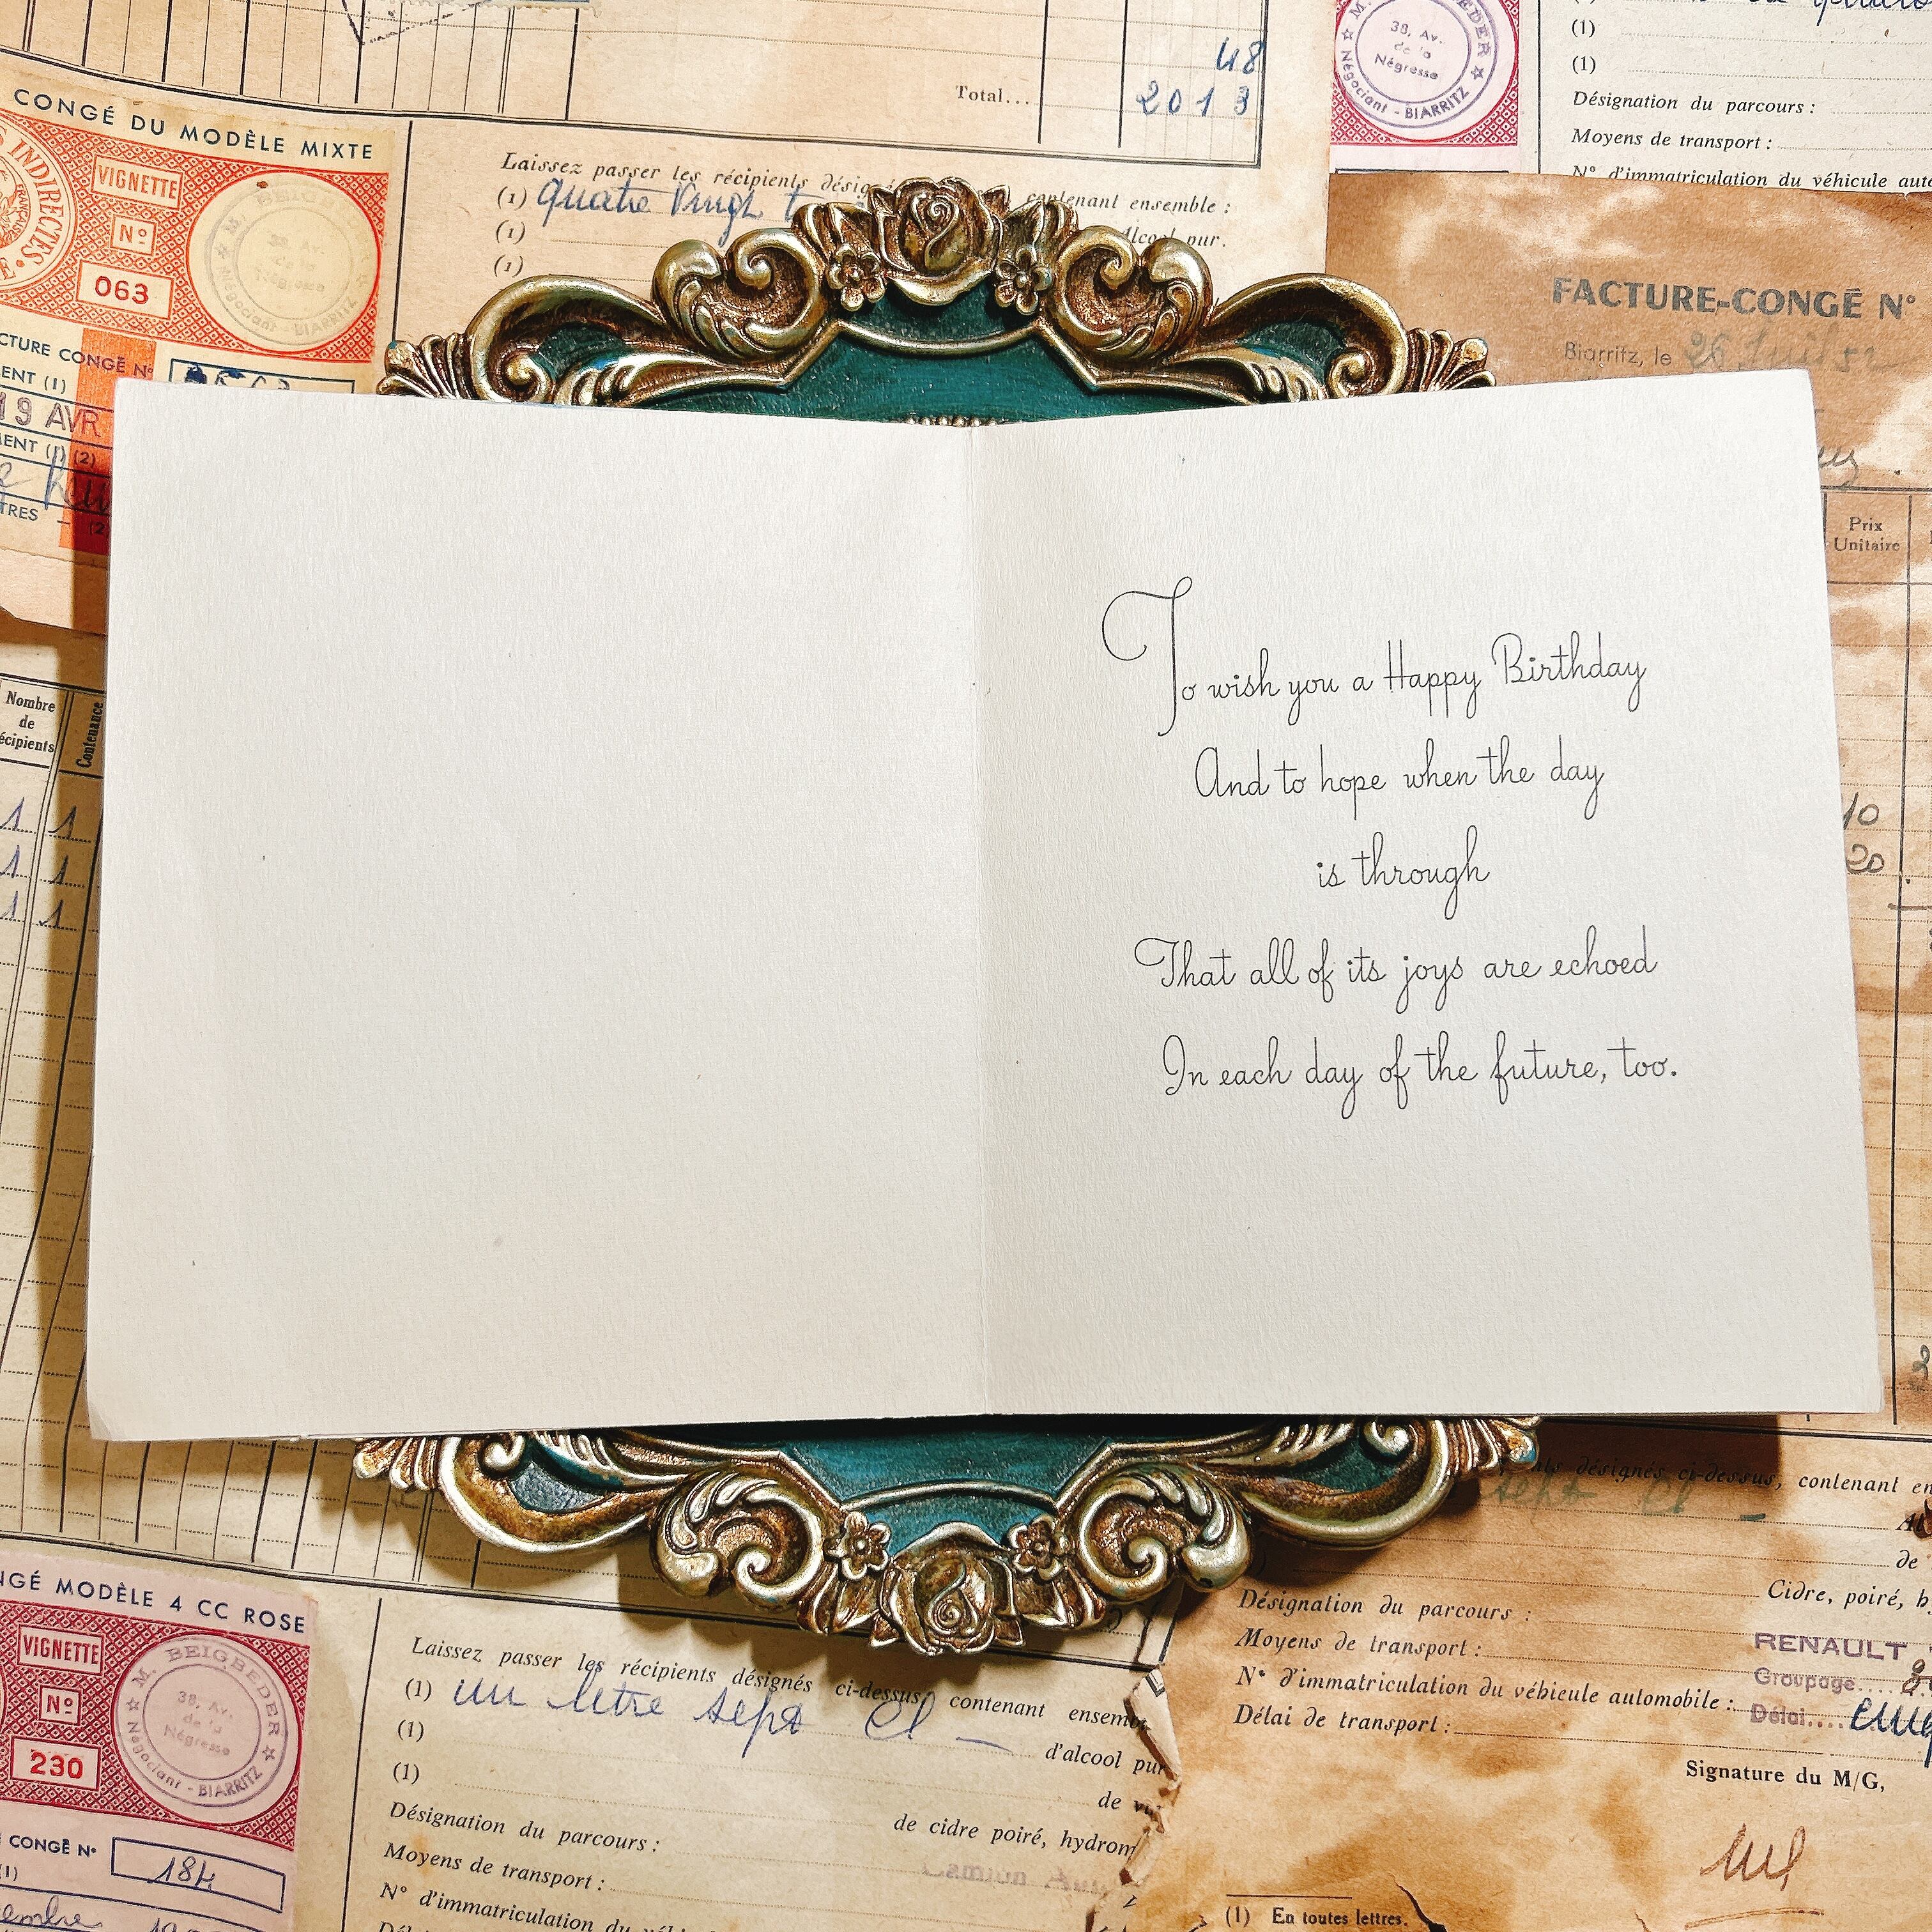 48
Total... 2013
CONGÉ DU MODÈLE MIXTE
INDIRECTES
VIGNETTE
Nº
063
M. BEIGBEDER
38, Av.
de la
Négresse
Négociant - BIARRITZ
CONGÉ Nº
19 AVR
Laissez passer les récipients
(1) Quatre Vingt
contenant ensemble :
(1) Alcool pur.
(1)
38, Av.
de la
Négresse
Négociant - BIARRITZ
(1)
(1)
Désignation du parcours :
Moyens de transport :
N° d'immatriculation du véhicule
FACTURE-CONGÉ N°
Biarritz, le 26 Juil 52
Prix
Unitaire
10
20
Nombre
de
Contenance
1 1
1 1
1 1
To wish you a Happy Birthday
And to hope when the day
is through
That all of its joys are echoed
In each day of the future, too.
MODÈLE 4 CC ROSE
VIGNETTE
Nº
230
M. BEIGBEDER
38, Av.
de la
Négresse
Négociant - BIARRITZ
CONGÉ Nº 184
(1)
Laissez passer les récipients désignés ci-dessus, contenant
(1) un litre sept cl
(1) d'alcool pur
(1) de
de cidre poiré,
Désignation du parcours :
Moyens de transport :
N° d'immatriculation du
désignés ci-dessus, contenant
sept cl
de
Cidre, poiré,
Désignation du parcours :
Moyens de transport :
RENAULT
N° d'immatriculation du véhicule automobile :
Groupage....
Délai de transport :
Délai....
Signature du M/G,
(1) En toutes lettres.